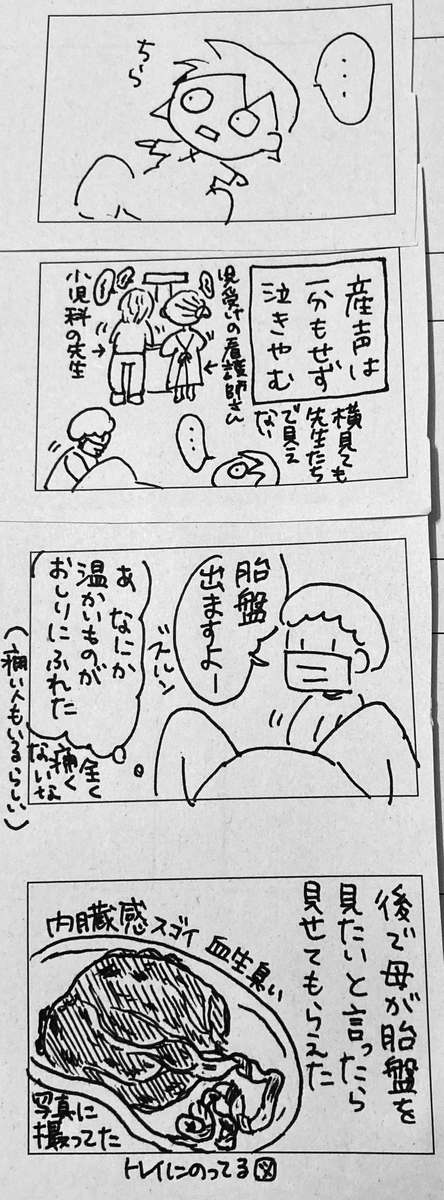 ・・・
ちら
産声は
一分もせず
泣きやむ
児受けの看護師さん
小児科の先生
横見ても
先生たち
で見え
ない
・・・
胎盤
出ますよー
ズルン
あ なにか
温かいものが
おしりにふれた
全く
痛く
ないな
(痛い人もいるらしい)
後で母が胎盤を
見たいと言ったら
見せてもらえた
内臓感スゴイ 血生臭い
写真に
撮ってた
トレイにのってる図